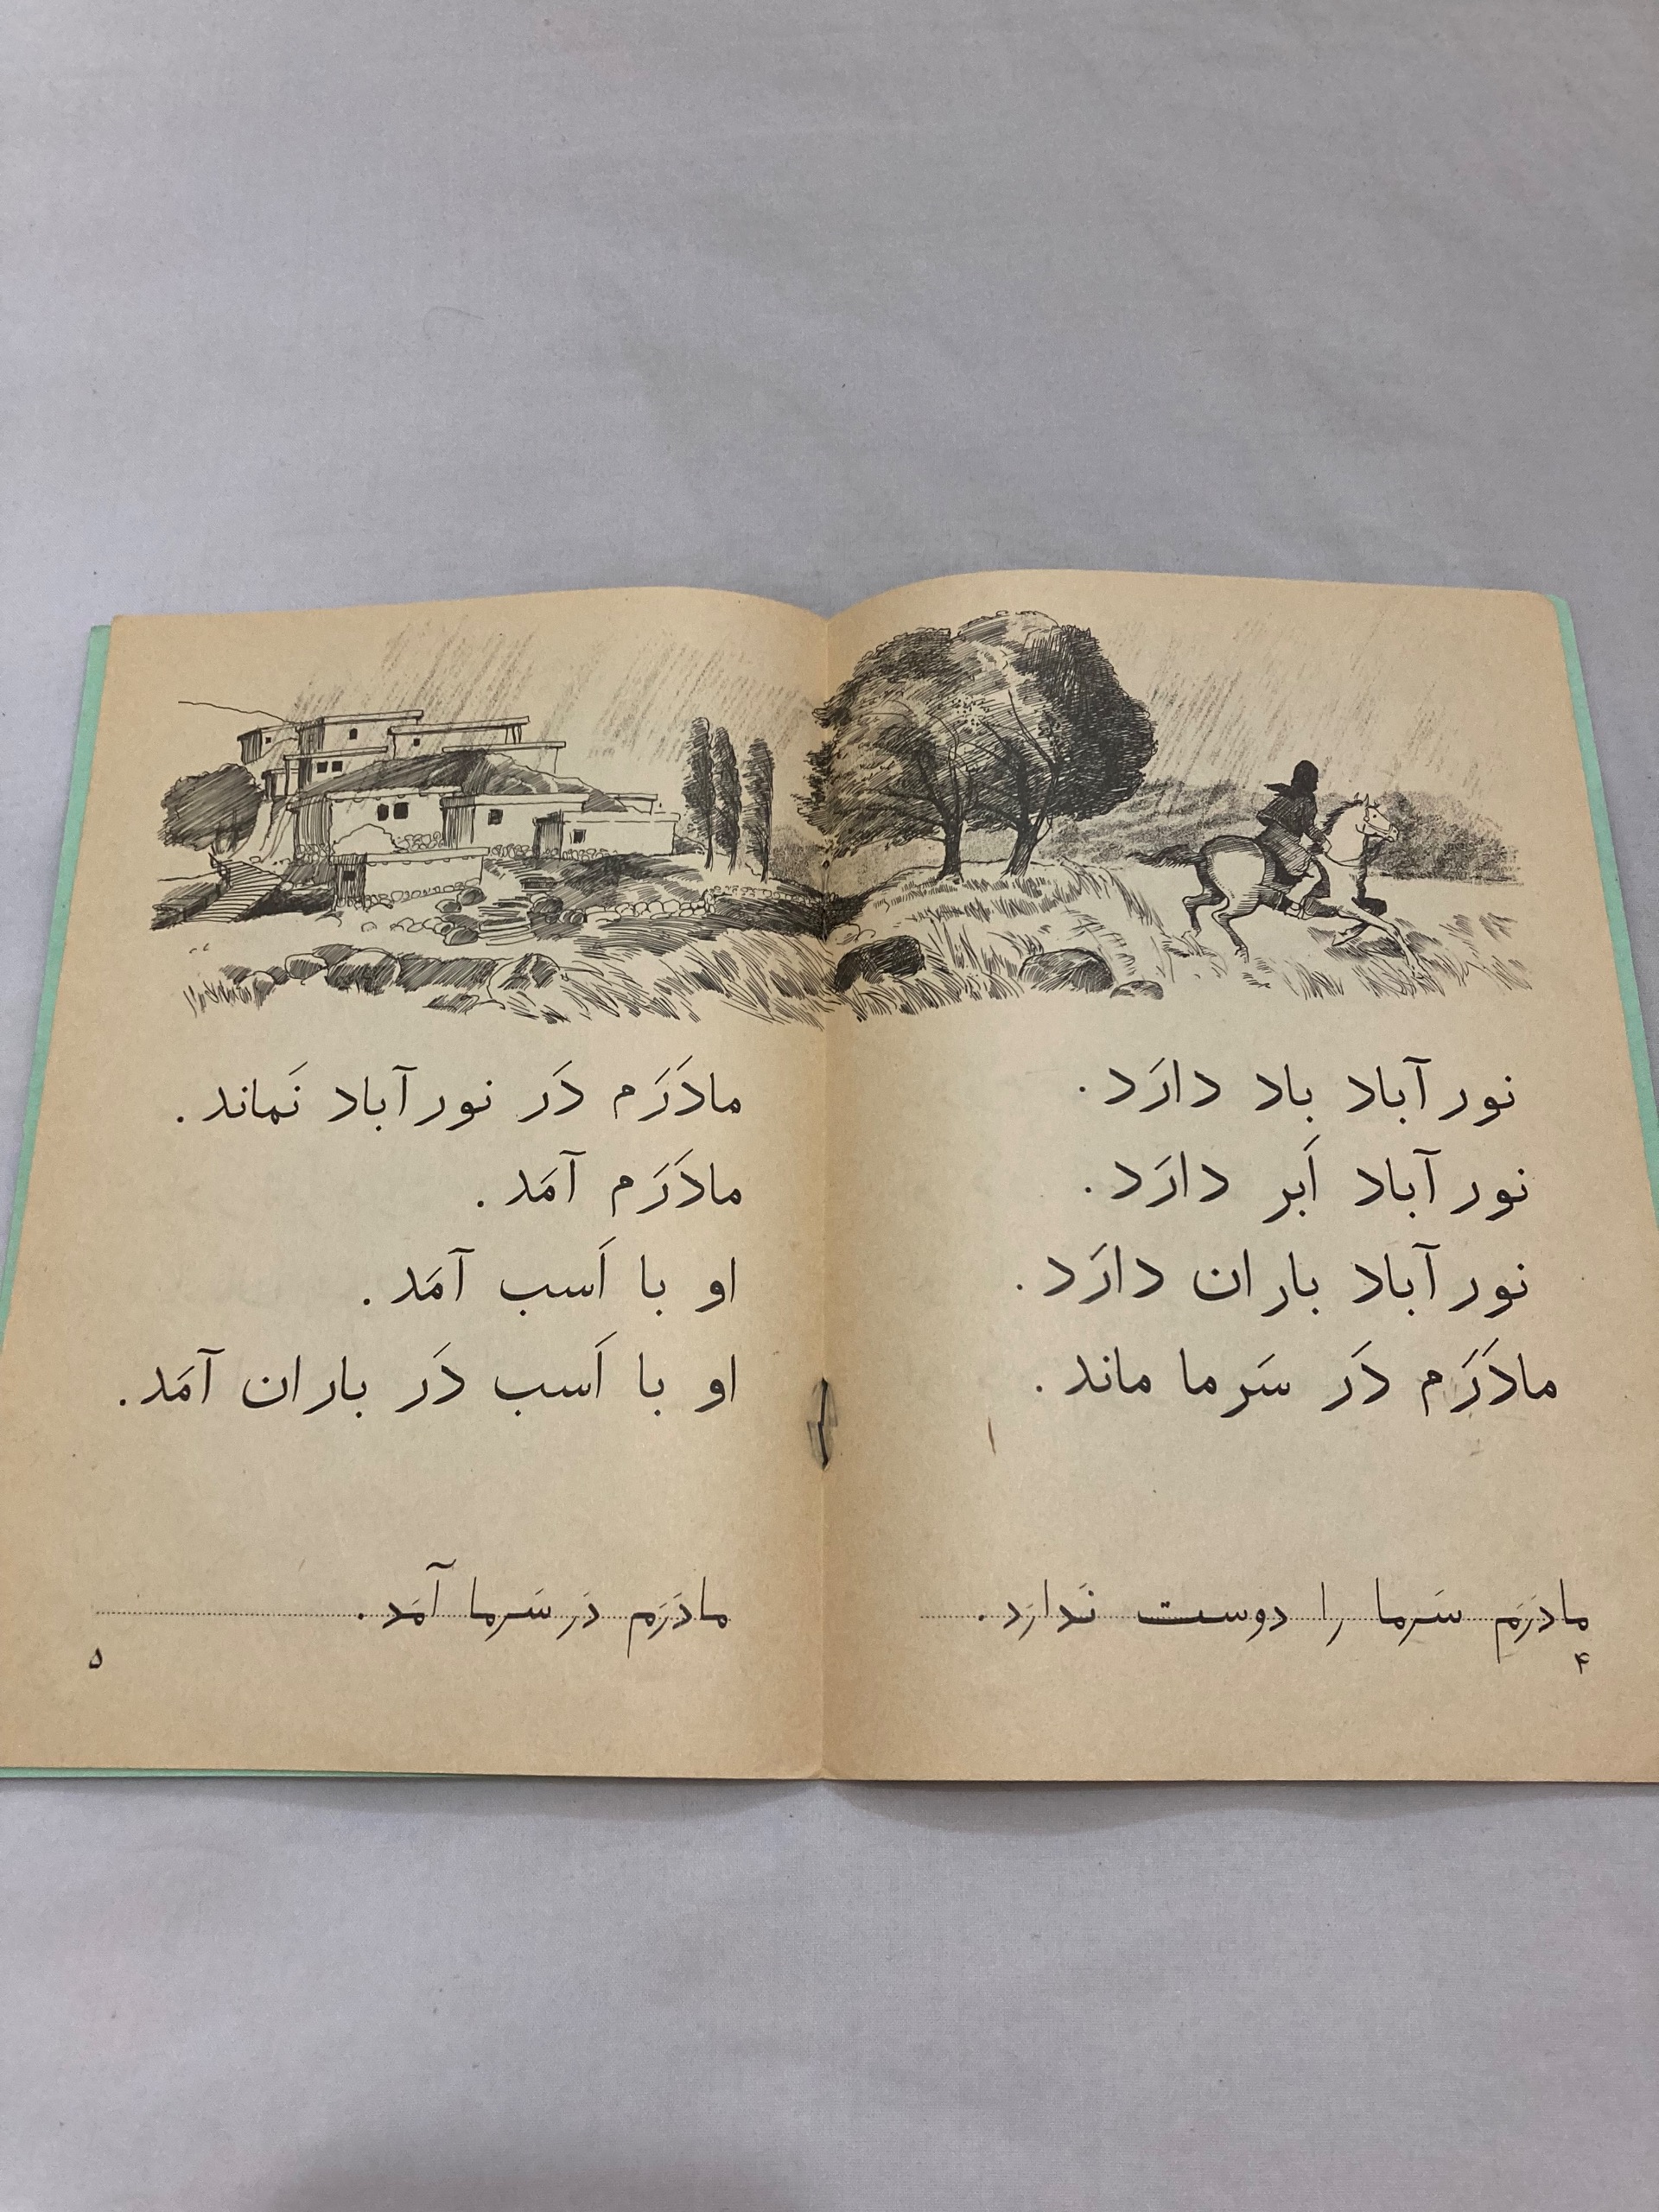 نور آباد باد دارَد.
نور آباد اَبر دارَد.
نور آباد باران دارَد.
مادَرَم دَر سَرما ماند.
مادَرَم سَرما را دوست نَدارَد.
۴
مادَرَم دَر نور آباد نَماند.
مادَرَم آمَد.
او با اَسب آمَد.
او با اَسب دَر باران آمَد.
مادَرَم دَر سَرما آمَد.
۵